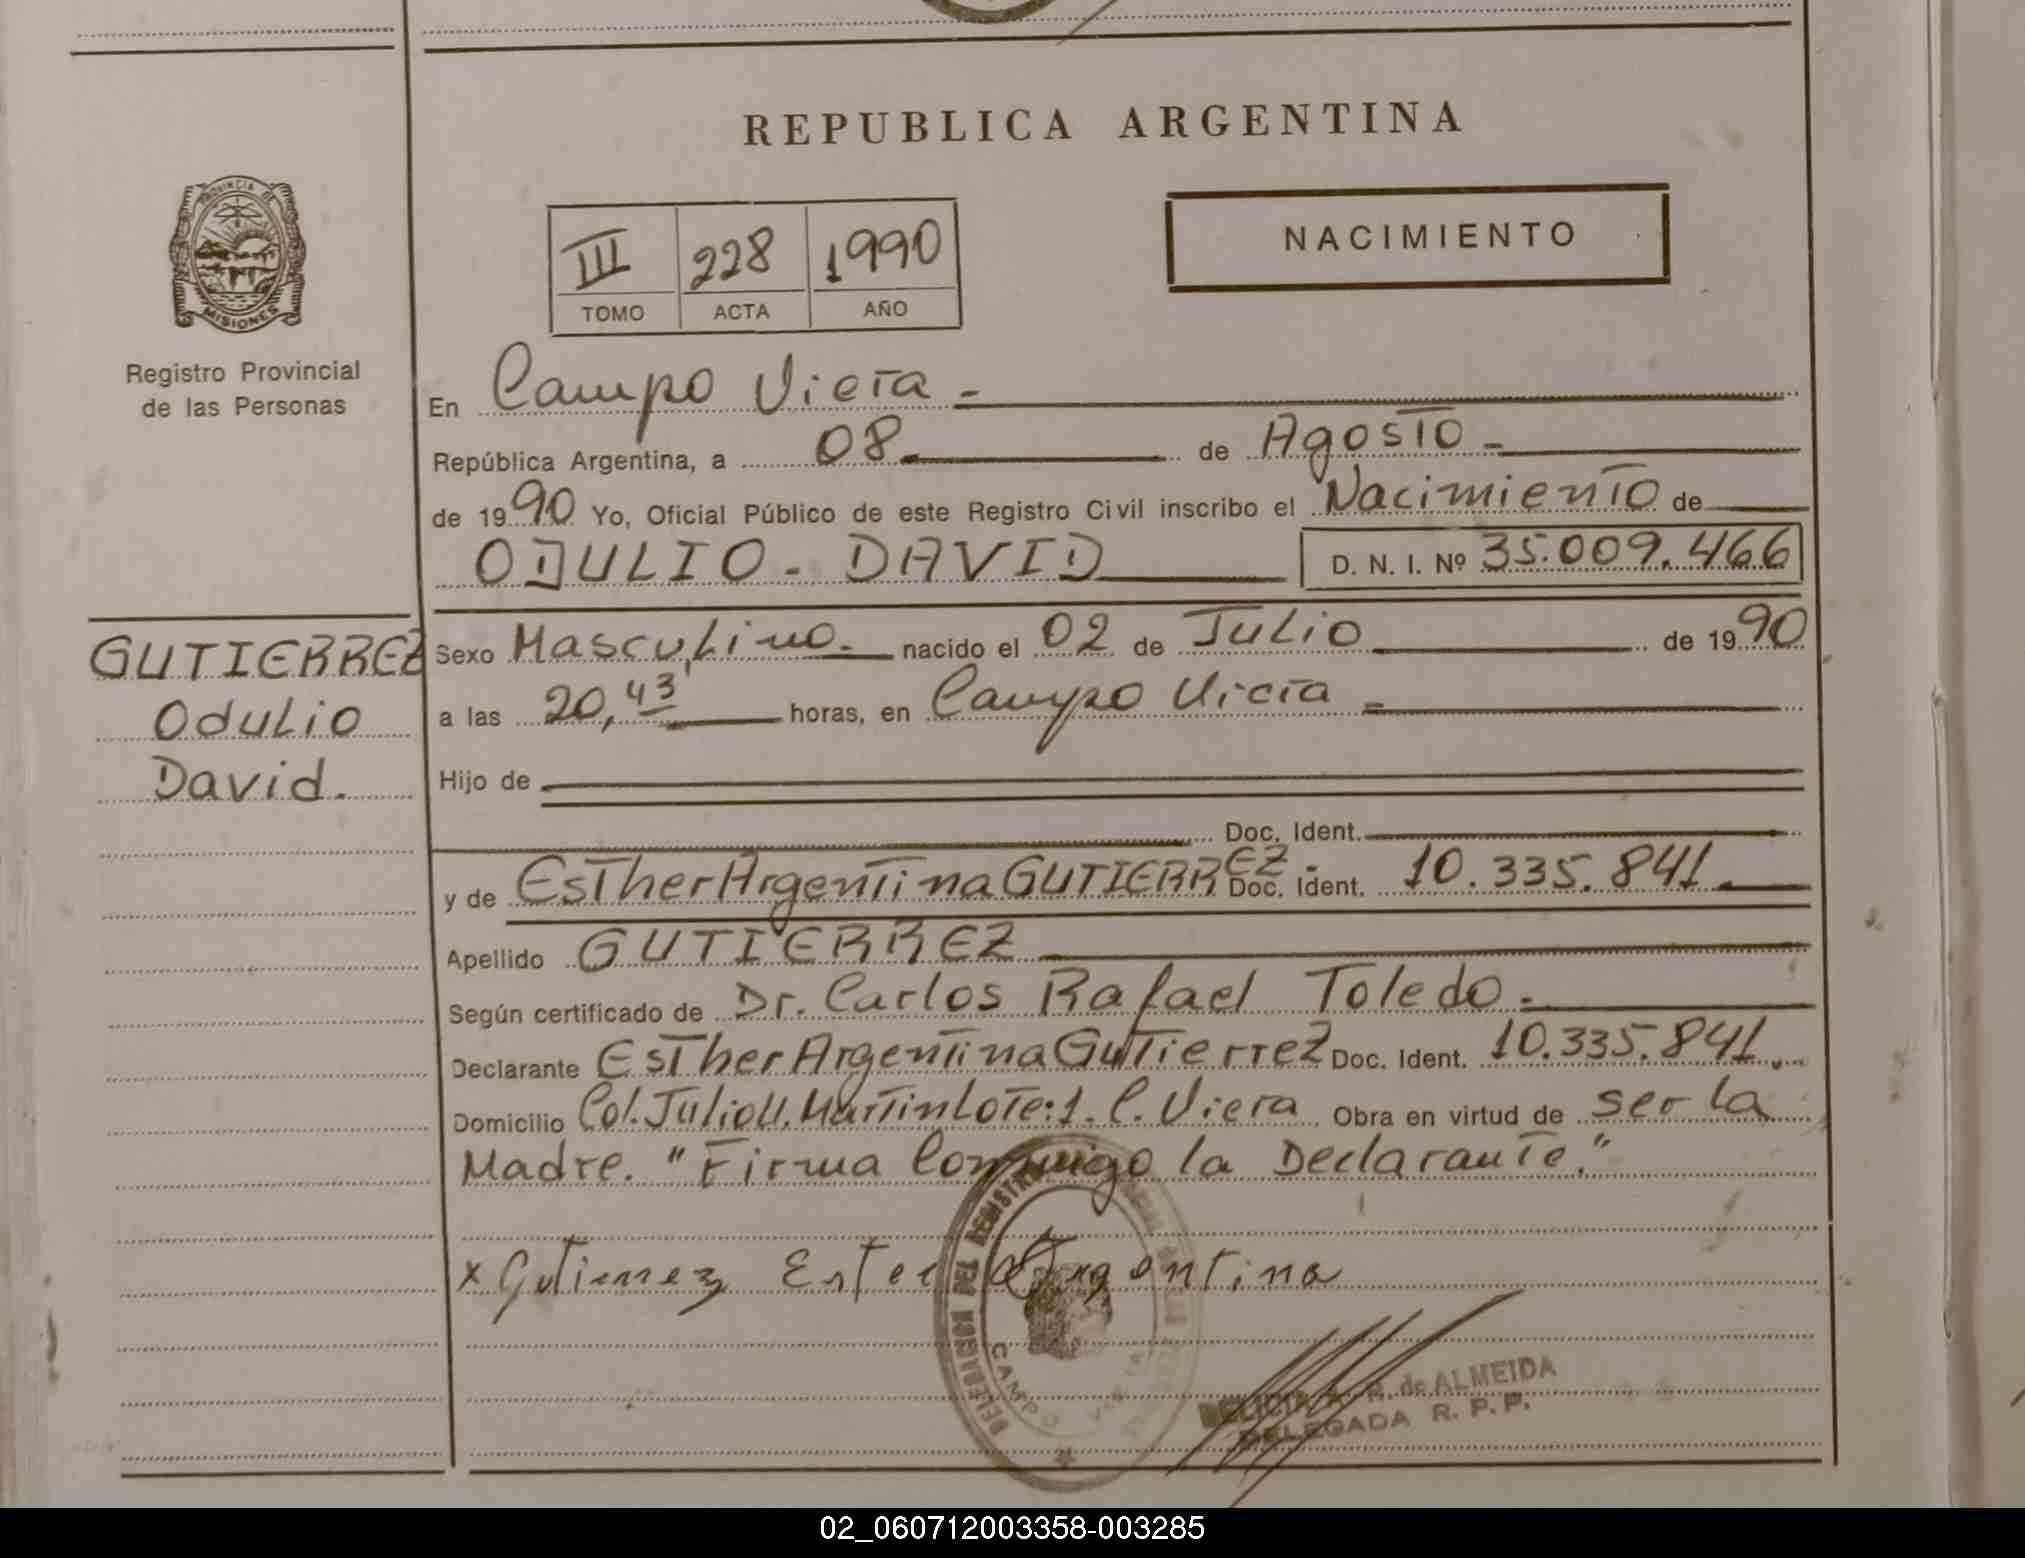 REPUBLICA ARGENTINA
PROVINCIA DE
MISIONES
Registro Provincial
de las Personas
III 228 1990
TOMO ACTA AÑO
NACIMIENTO
En Campo Viera
República Argentina, a 08 de Agosto
de 1990 Yo, Oficial Público de este Registro Civil inscribo el Nacimiento de
ODULIO - DAVID D. N. I. Nº 35.009.466
GUTIERREZ
Odulio
David.
Sexo Masculino. nacido el 02 de Julio de 1990
a las 20,43 horas, en Campo Viera
Hijo de
Doc. Ident.
y de Esther Argentina GUTIERREZ.- Doc. Ident. 10.335.841.
Apellido GUTIERREZ
Según certificado de Dr. Carlos Rafael Toledo.-
Declarante Esther Argentina Gutierrez Doc. Ident. 10.335.841.
Domicilio Col. Julio U. Martin Lote: 1. C. Viera Obra en virtud de ser la
Madre. "Firma Conmigo la Declarante."
x Gutierrez Ester Argentina
CAMPO VIERA
DELICIA R. de ALMEIDA
DELEGADA R. P. P.
02_060712003358-003285